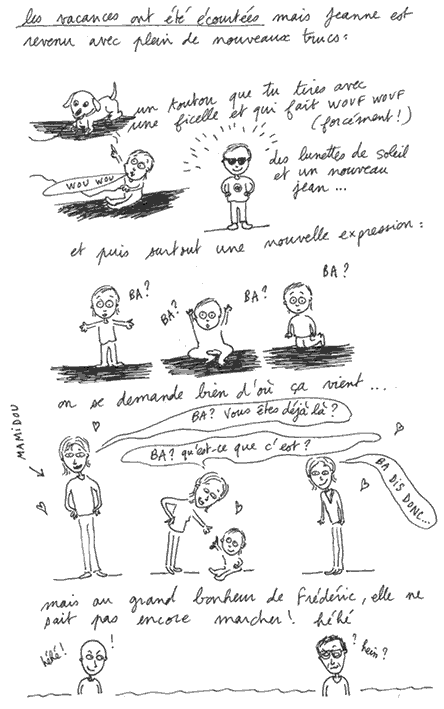 les vacances ont été écourtées mais Jeanne est
revenu avec plein de nouveaux trucs :
un toutou que tu tires avec
une ficelle et qui fait WOUF WOUF
(forcément !)
WOU WOU
des lunettes de soleil
et un nouveau
jean ...
et puis surtout une nouvelle expression :
BA ?
BA ?
BA ?
BA ?
on se demande bien d'où ça vient ...
MAMIDOU
BA ? vous êtes déjà là ?
BA ? qu'est-ce que c'est ?
BA DIS DONC...
mais au grand bonheur de Frédéric, elle ne
sait pas encore marcher ! héhé
héhé !
!
?
hein ?